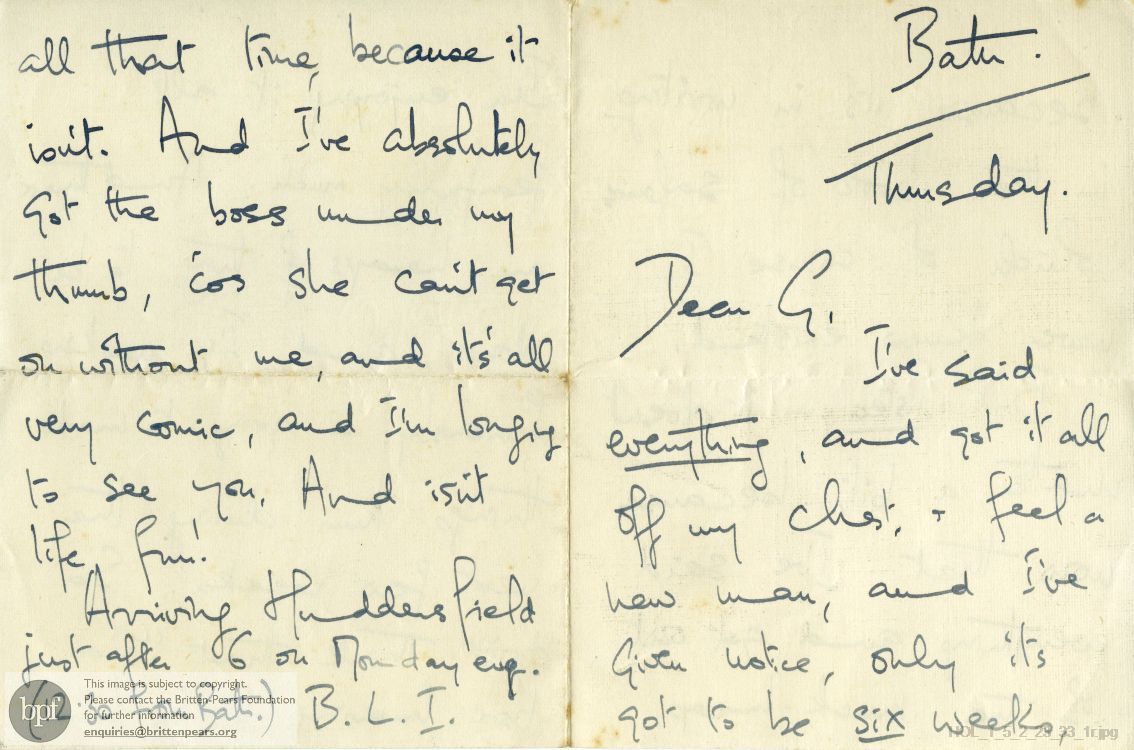 Bath.
Thursday.
Dear G.
I've said
everything, and got it all
off my chest, + feel a
new man, and I've
given notice, only it's
got to be six weeks,
all that time, because it
isn't. And I've absolutely
got the boss under my
thumb, 'cos she can't get
on without me, and it's all
very comic, and I'm longing
to see you. And isn't
life fun!
Arriving Huddersfield
just after 6 on Monday eng.
(2.30 from Bath.) B.L.I.
bpf
This image is subject to copyright.
Please contact the Britten-Pears Foundation
for further information
enquiries@brittenpears.org
HOL_1_5_2_29_33_1r.jpg